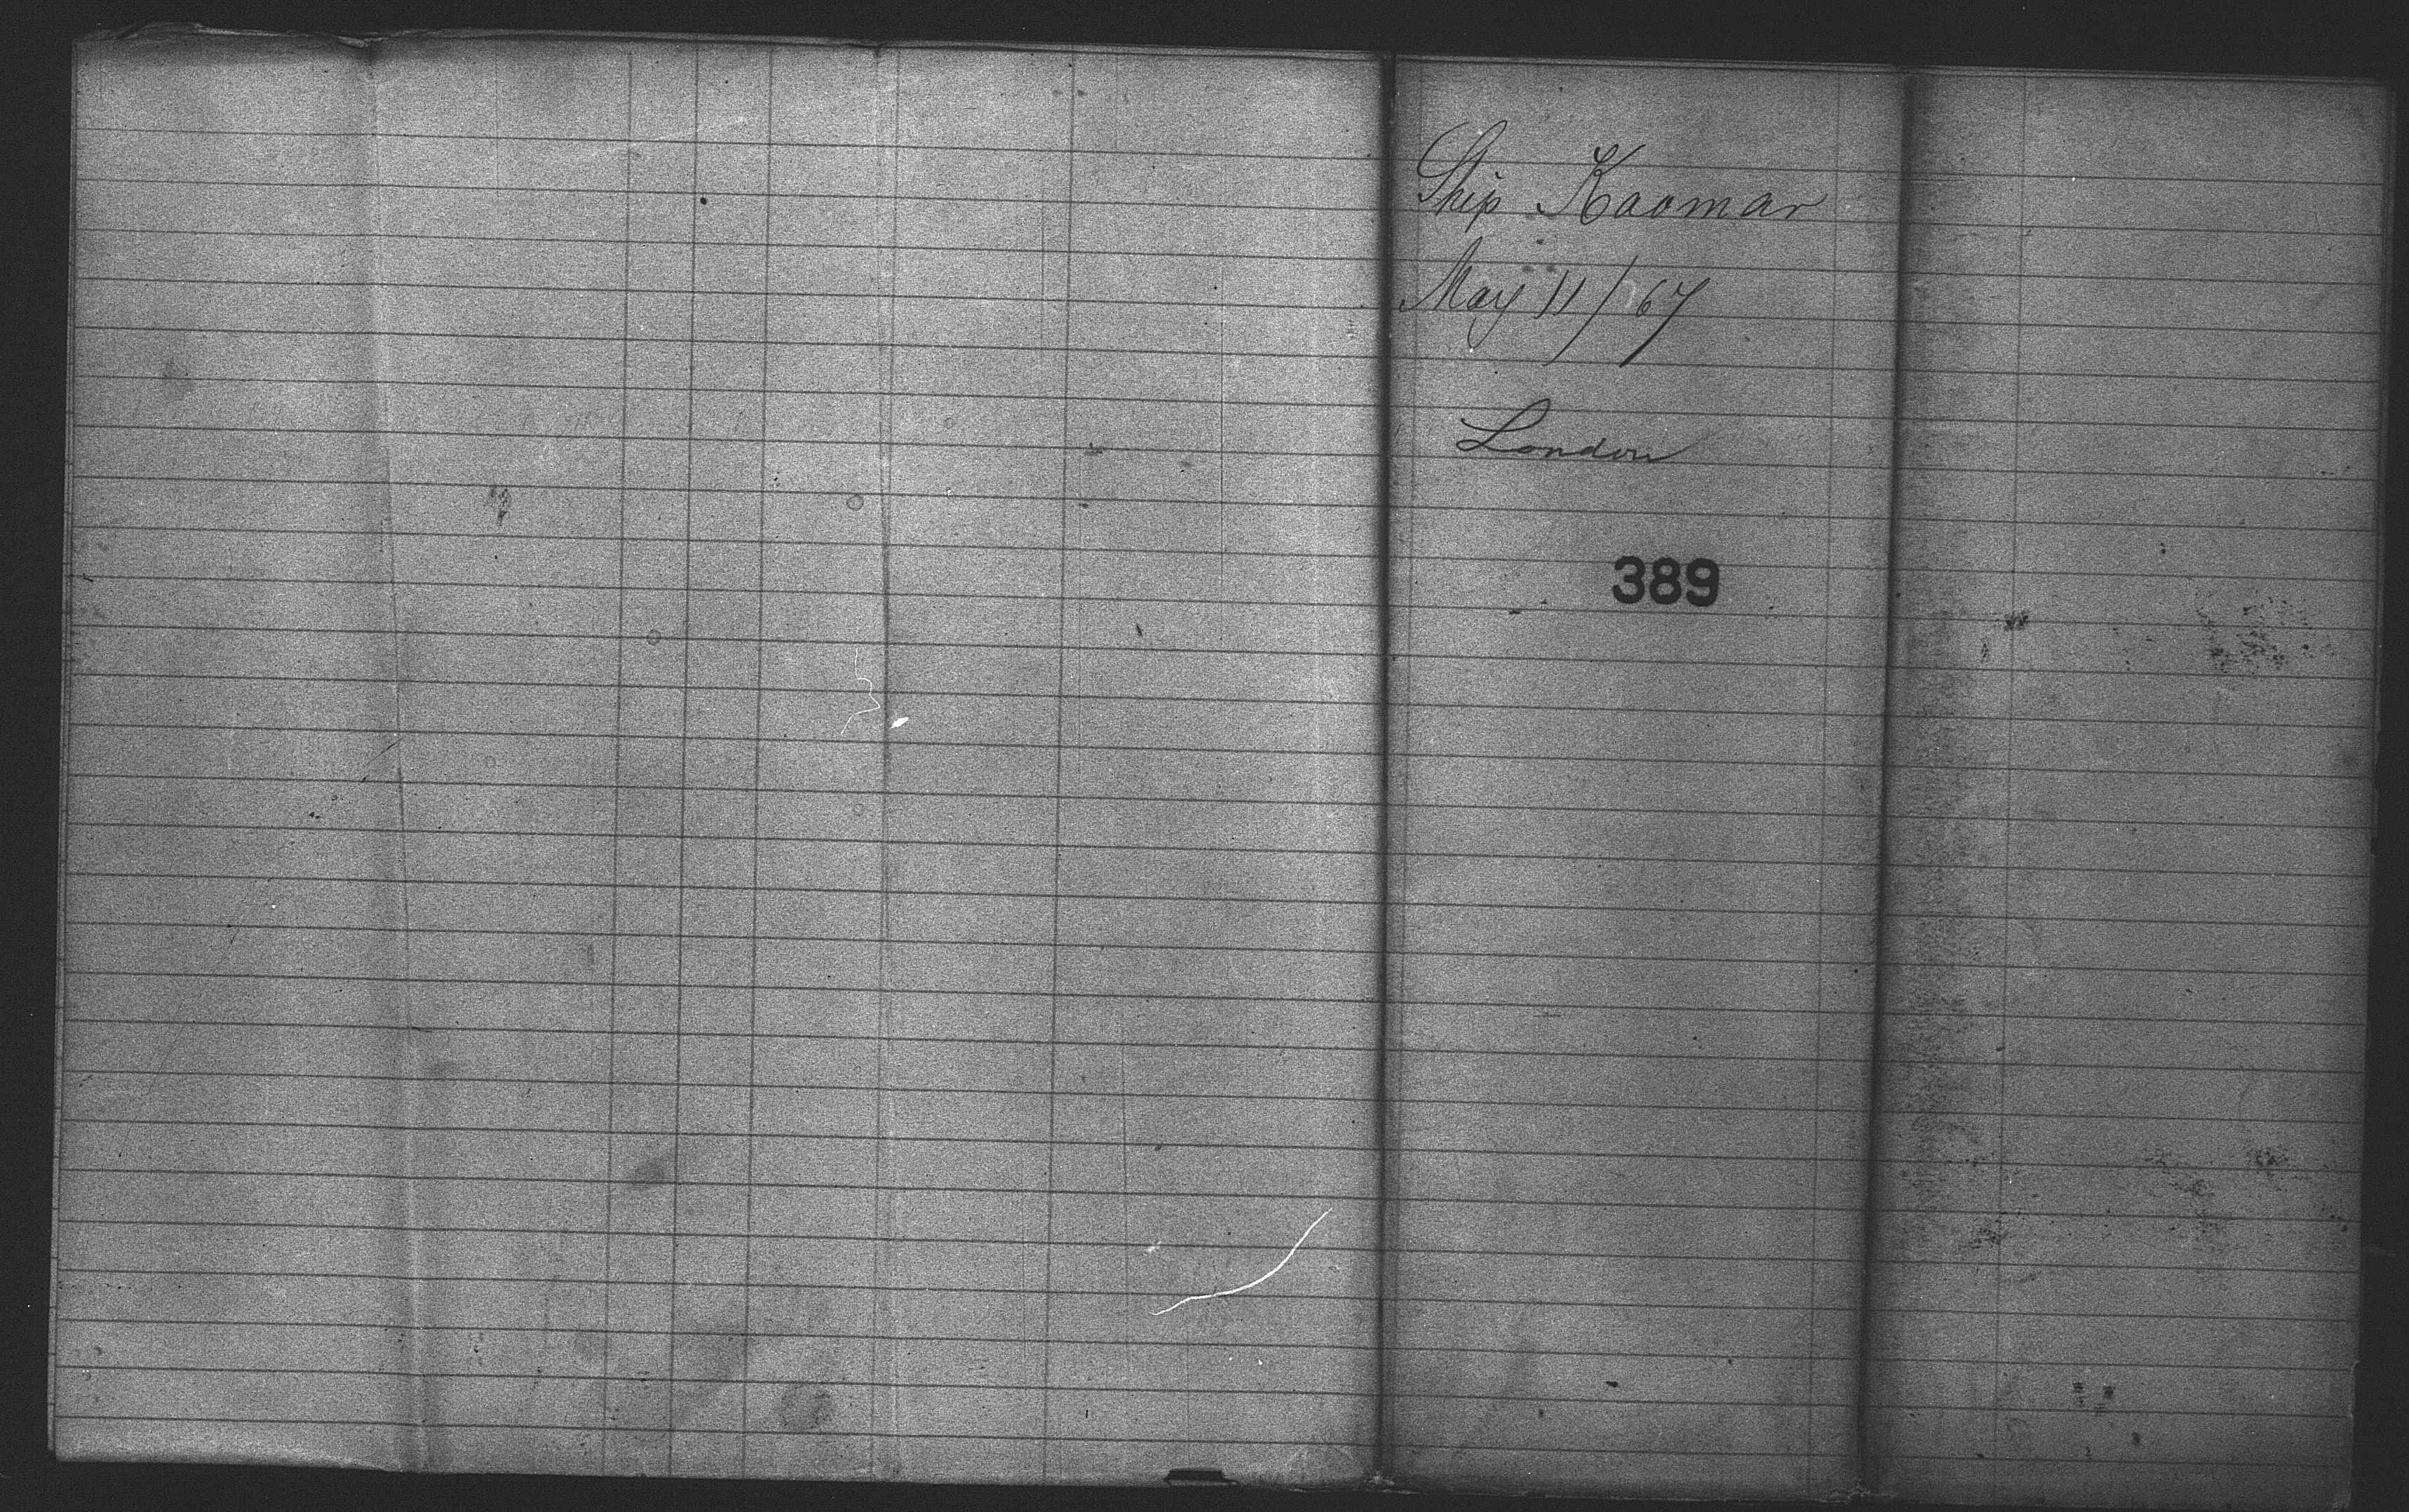 Ship Kaomar
May 11/67
London
389